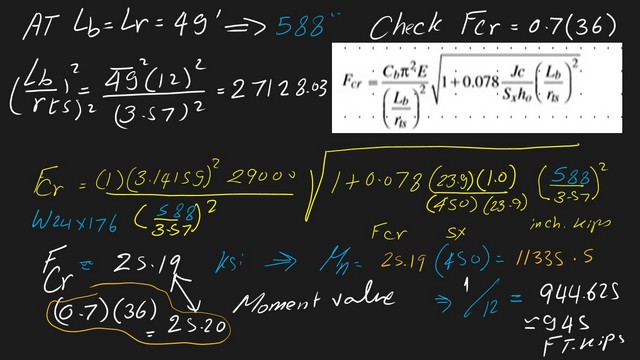 AT Lb = Lr = 49' ⟹ 588" Check Fcr = 0.7(36)
(Lb/rts)² = 49²(12)²/(3.57)² = 27128.03
F_cr = C_bπ²E/(L_b/r_ts)² √(1 + 0.078 Jc/(S_x h_o) (L_b/r_ts)²)
Fcr = (1)(3.14159)² 29000/(588/3.57)² √(1 + 0.078 (23.9)(1.0)/(450)(23.9) (588/3.57)²)
W24x176
inch. kips
Fcr Sx
Fcr = 25.19 ksi ⟹ Mn = 25.19 (450) = 11335.5
(0.7)(36) = 25.20 Moment value ⟹ 1/12 = 944.625
≈ 945
FT. kips